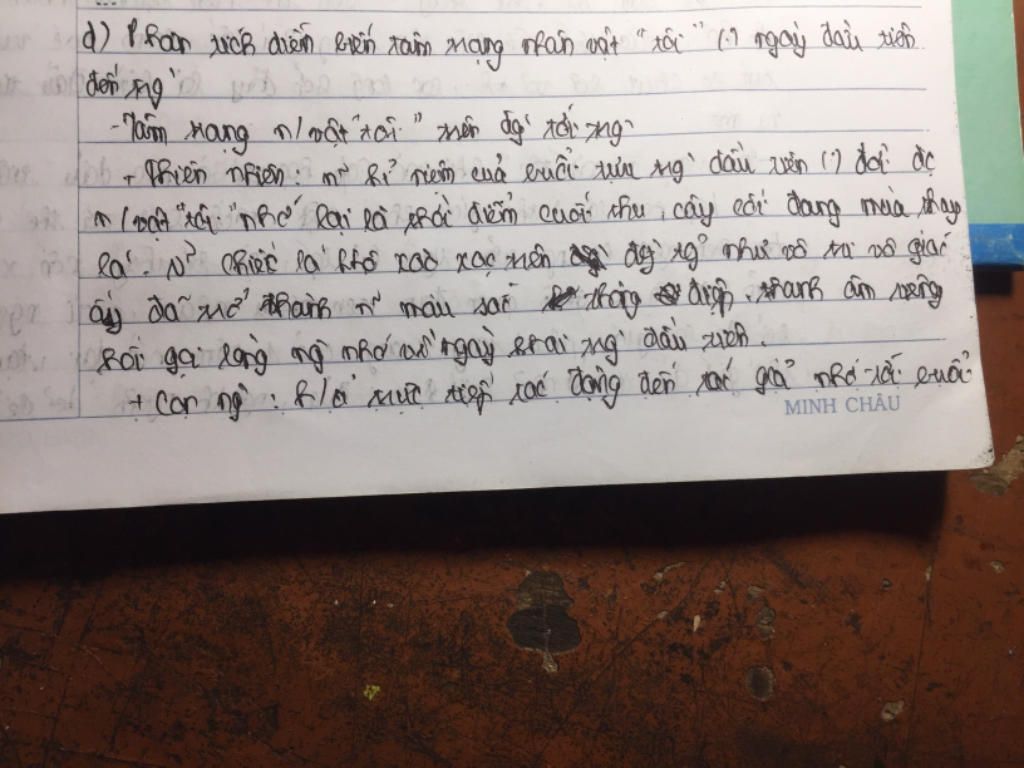 d) Phân tích diễn biến tâm trạng nhân vật "tôi" (.) ngày đầu tiên
đến tg`
- Tâm trạng n/vật "tôi" trên đg` tới tg`
+ Thiên nhiên: n~ kỉ niệm của buổi tựu tg` đầu tiên (.) đời đc
n/vật "tôi" nhớ lại là thời điểm cuối thu, cây cối đang mùa thay
lá. N~ chiếc lá khô xào xạc trên đg` tg` như vô tri vô giác
ấy đã trở thành n~ màu sắc thông điệp, thanh âm
khơi gợi lòng ng` nhớ về ngày khai tg` đầu tiên.
+ Con ng`: h/ả trực tiếp tác động đến tác giả nhớ tới buổi
MINH CHÂU